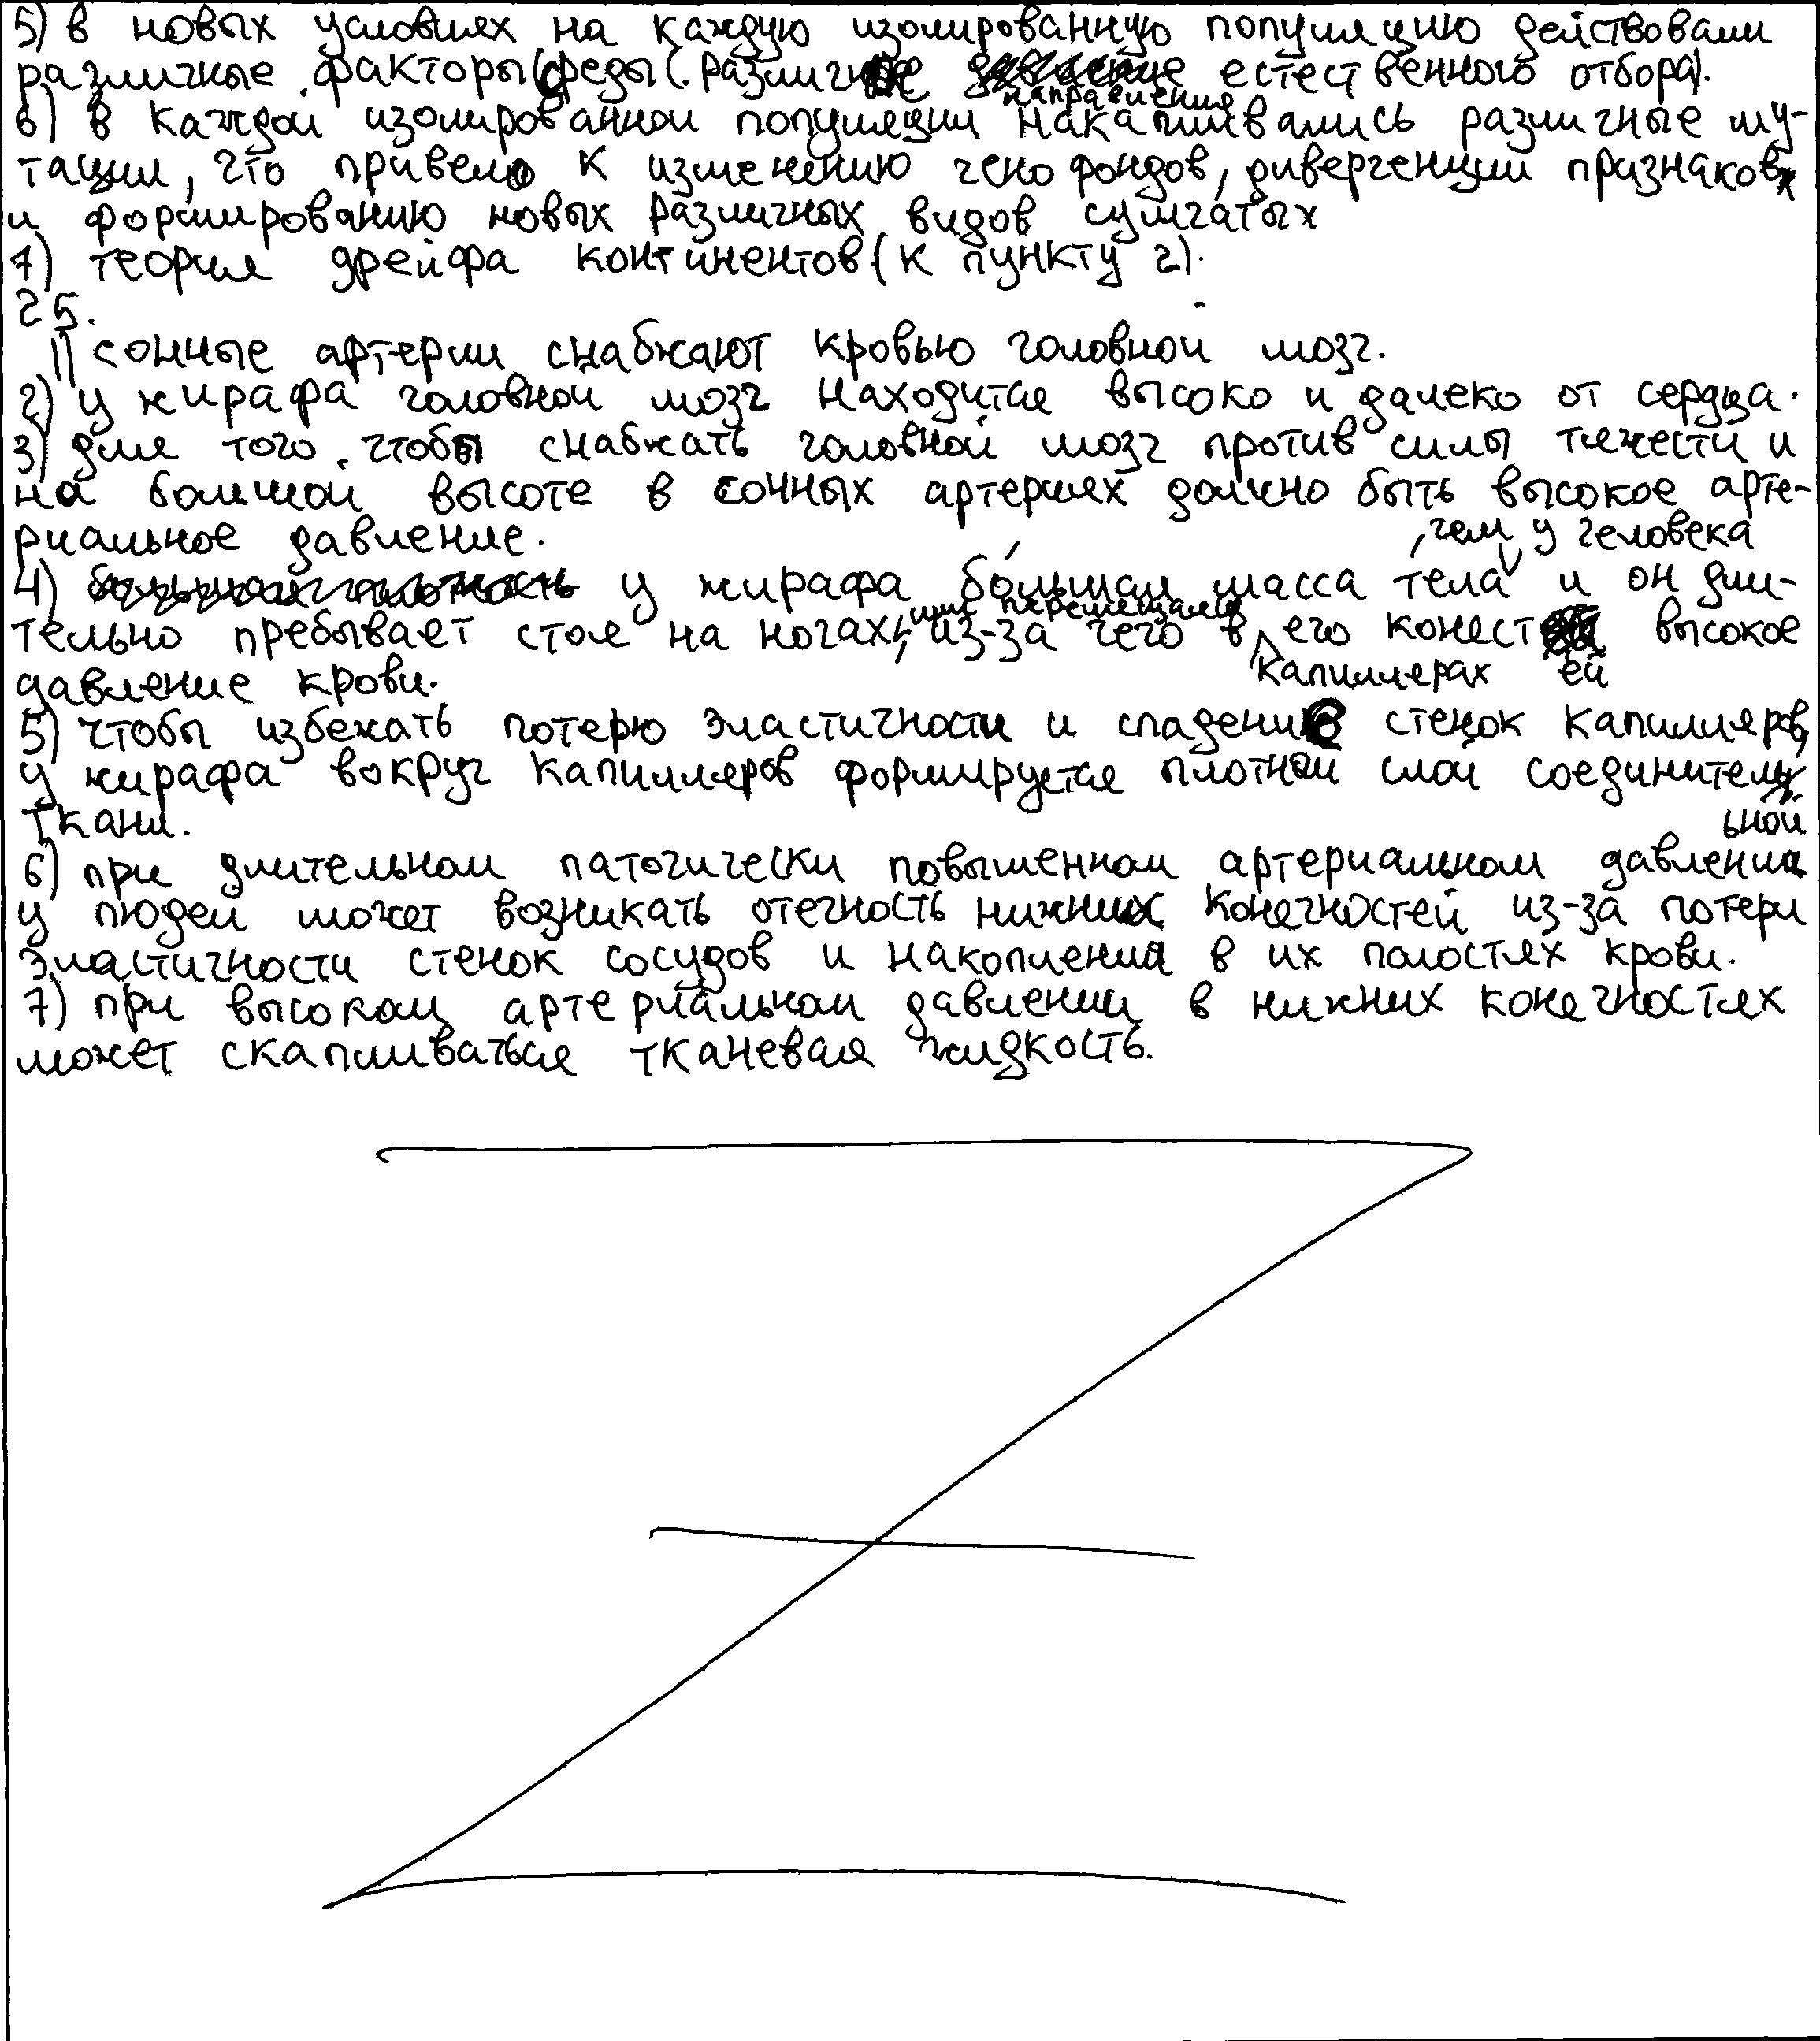 5) в новых условиях на каждую изолированную популяцию действовали
различные факторы среды (различные направления естественного отбора).
6) в каждой изолированной популяции накапливались различные му-
тации, что привело к изменению генофондов, дивергенции признаков
и формированию новых различных видов сумчатых
7) теория дрейфа континентов (к пункту 2).
25.
1) сонные артерии снабжают кровью головной мозг.
2) у жирафа головной мозг находится высоко и далеко от сердца.
3) для того, чтобы снабжать головной мозг против силы тяжести и
на большой высоте в сонных артериях должно быть высокое арте-
риальное давление.
4) у жирафа бо́льшая масса тела, чем у человека и он дли-
тельно пребывает стоя на ногах, или перемещаясь из-за чего в капиллярах его конестей высокое
давление крови.
5) чтобы избежать потерю эластичности и спадения стенок капилляров,
у жирафа вокруг капилляров формируется плотный слой соединительной
ткани.
6) при длительном патогически повышенном артериальном давлении
у людей может возникать отечность нижних конечностей из-за потери
эластичности стенок сосудов и накопления в их полостях крови.
7) при высоком артериальном давлении в нижних конечностях
может скапливаться тканевая жидкость.